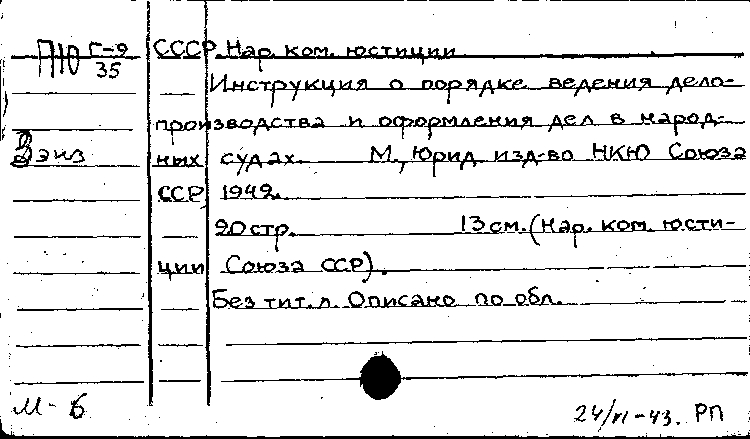 П10 Г-9/35 СССР. Нар. ком. юстиции
Инструкция о порядке ведения дело-
производства и оформления дел в народ-
Вэиз ных судах. М., Юрид. изд-во НКЮ Союза
ССР, 1942.
20 стр. 13 см. (Нар. ком. юсти-
ции Союза ССР).
Без тит. л. Описано по обл.
М-Б
24/VI-43. РП